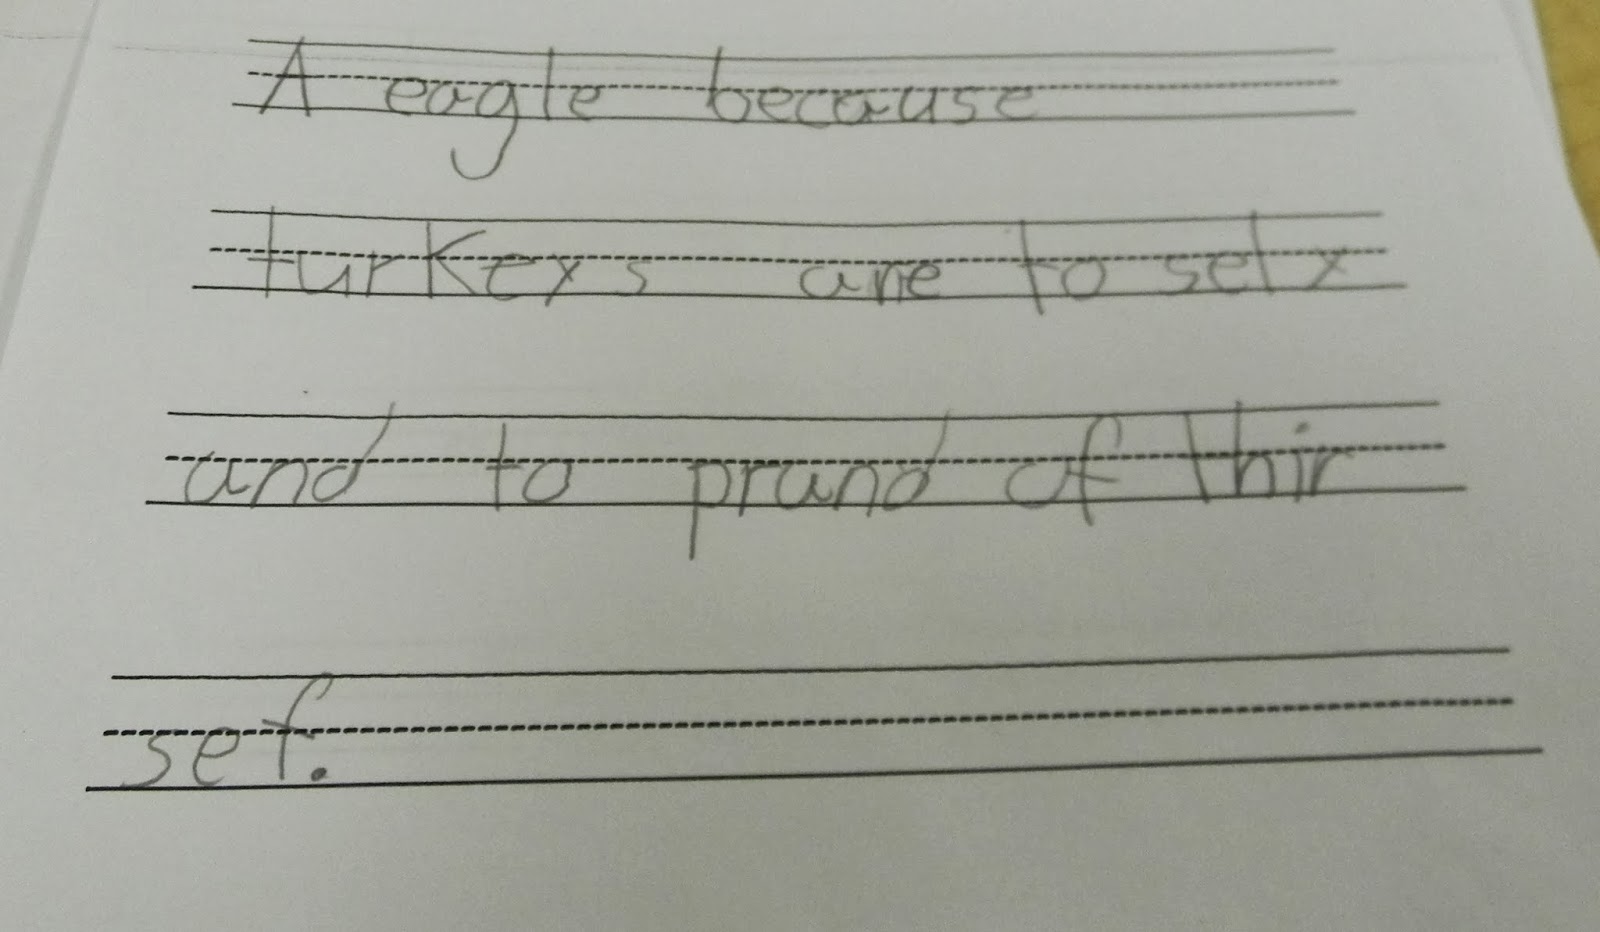 A eagle because
turkeys are to sely
and to praund of thir
sef.